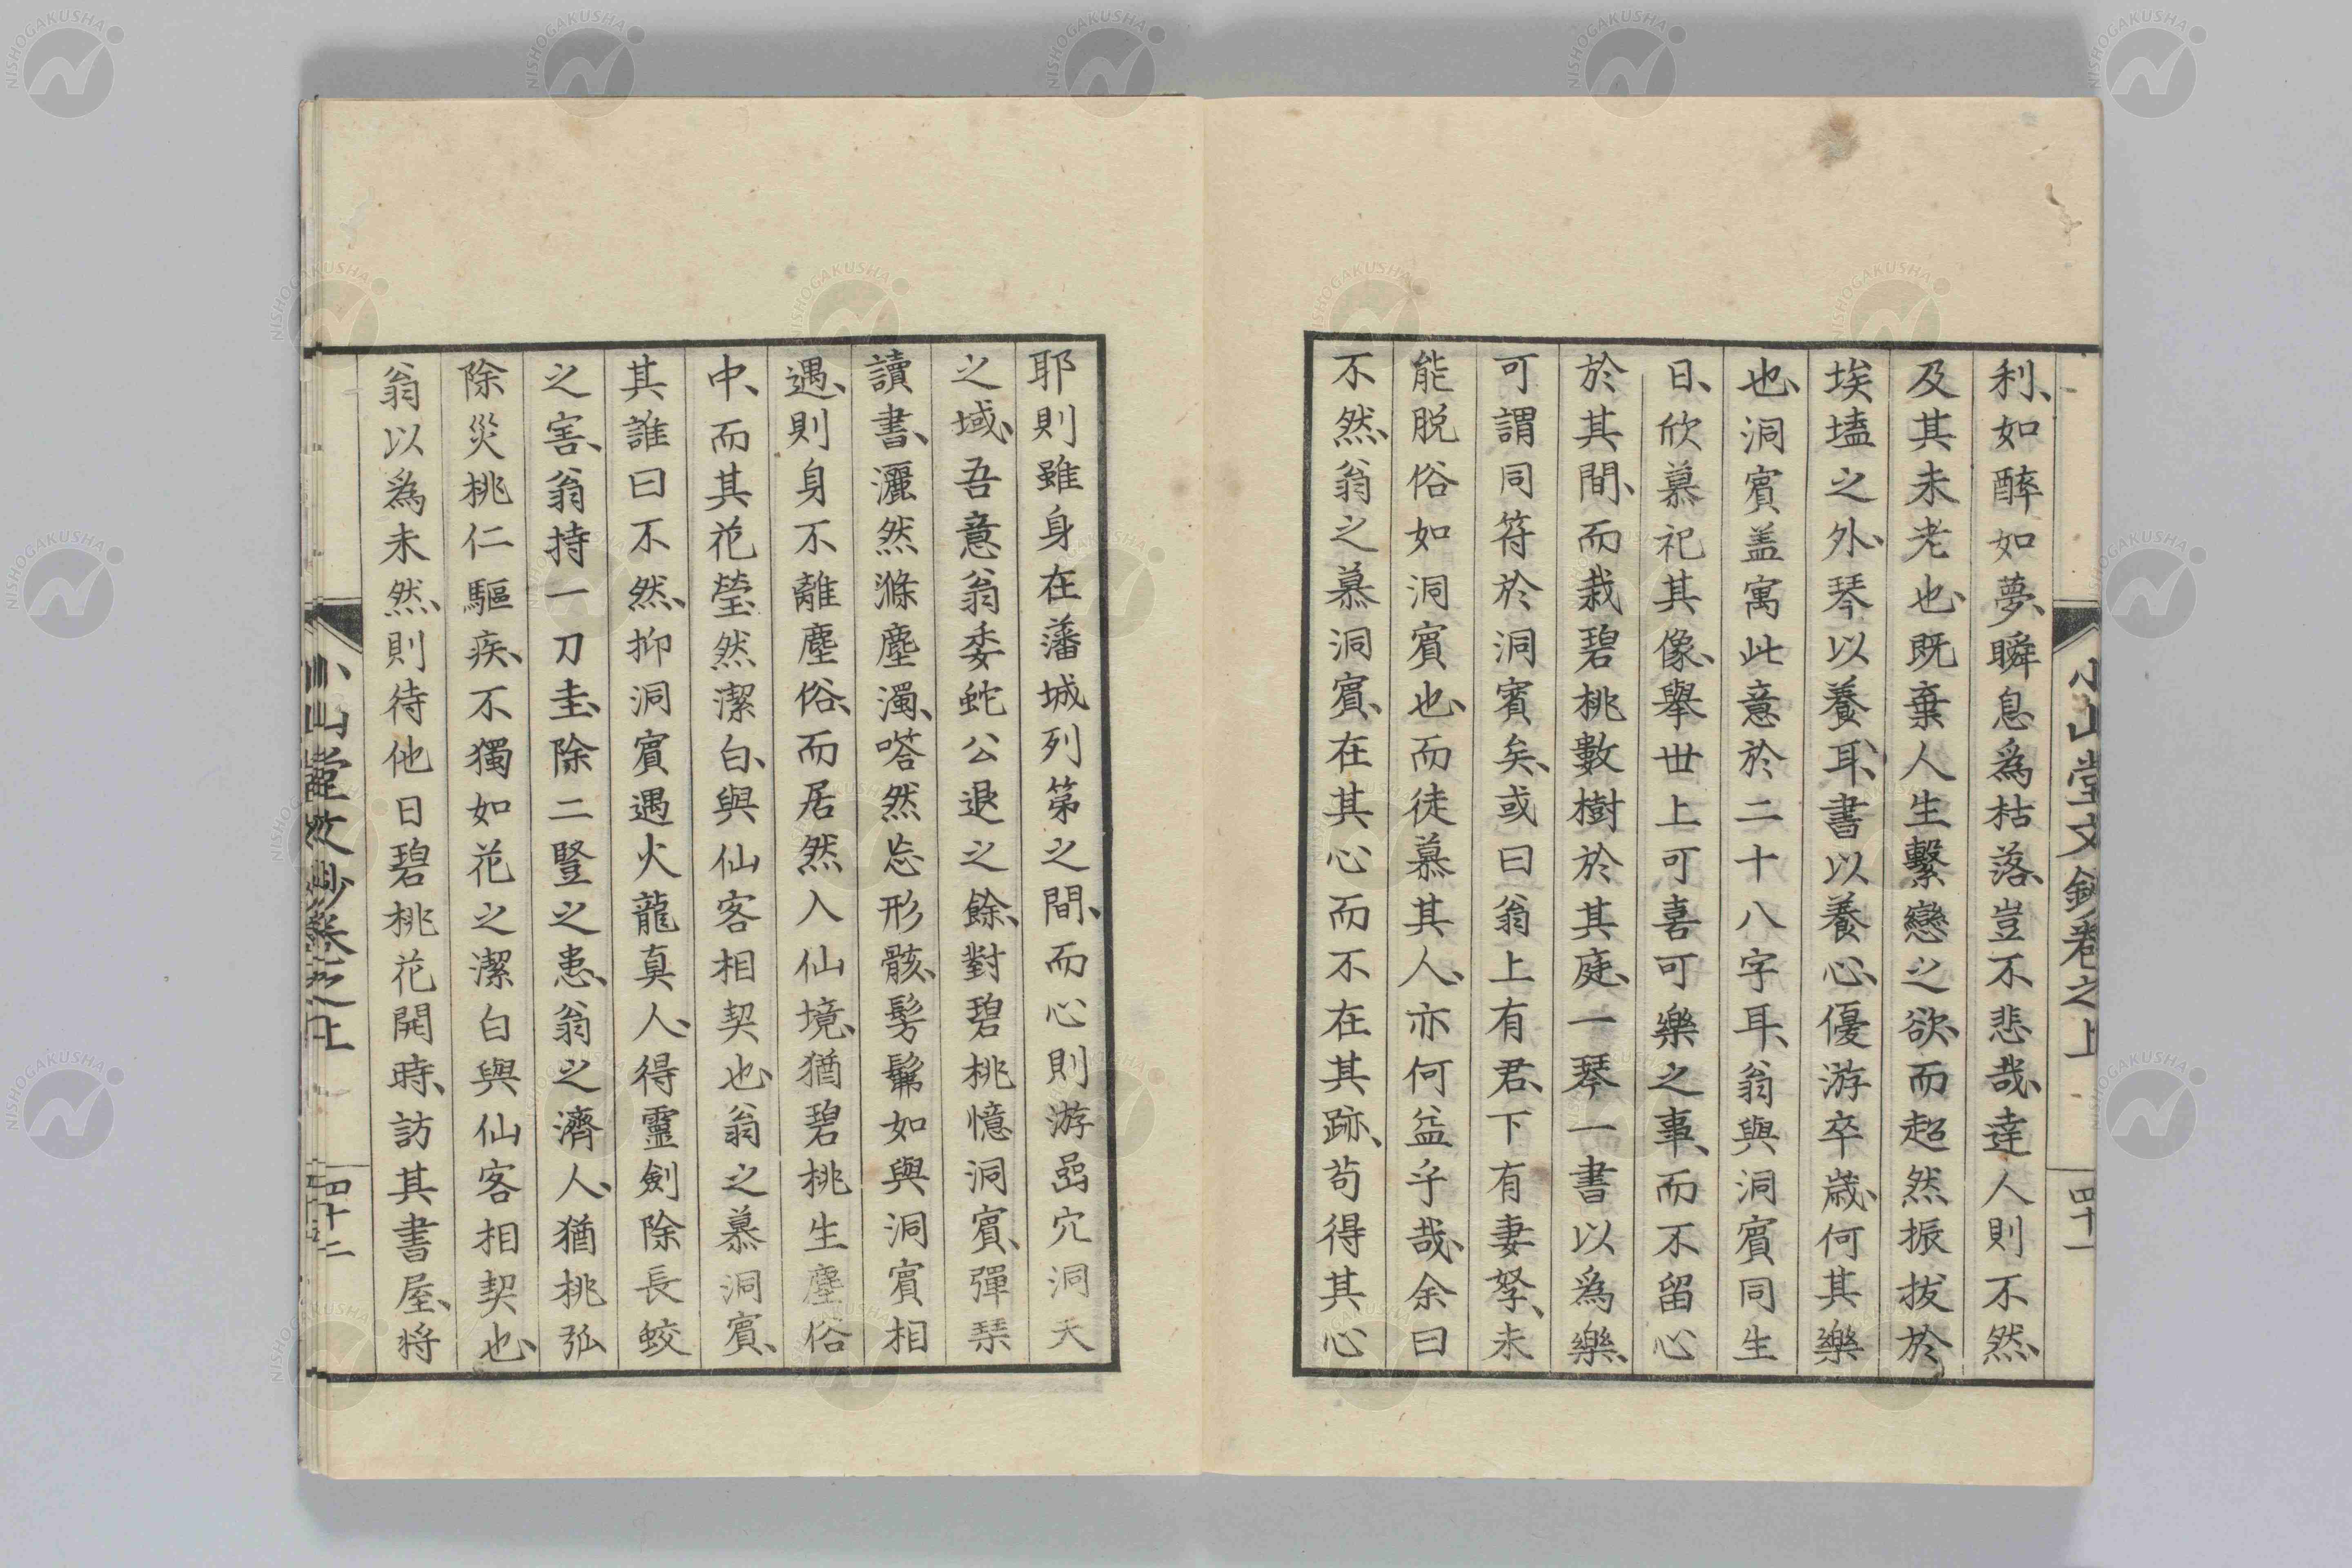 小山堂文鈔卷之上
四十一
利、如醉如夢、瞬息爲枯落、豈不悲哉、達人則不然、
及其未老也、既棄人生繫戀之欲、而超然振拔於
埃壒之外、琴以養耳、書以養心、優游卒歲、何其樂
也、洞賓盖寓此意於二十八字耳、翁與洞賓同生
日、欣慕祀其像、舉世上可喜可樂之事、而不留心
於其間、而栽碧桃數樹於其庭、一琴一書以爲樂、
可謂同符於洞賓矣、或曰翁上有君、下有妻孥、未
能脱俗如洞賓也、而徒慕其人、亦何益乎哉、余曰
不然、翁之慕洞賓、在其心而不在其跡、苟得其心
耶則雖身在藩城列第之間、而心則游嵒穴洞天
之域、吾意翁委蛇公退之餘、對碧桃憶洞賓、彈琹
讀書、灑然滌塵濁、嗒然忘形骸、髣髴如與洞賓相
遇、則身不離塵俗、而居然入仙境、猶碧桃生塵俗
中、而其花瑩然潔白、與仙客相契也、翁之慕洞賓、
其誰曰不然、抑洞賓遇火龍真人、得靈劍除長蛟
之害、翁持一刀圭、除二豎之患、翁之濟人、猶桃弧
除災桃仁驅疾、不獨如花之潔白與仙客相契也、
翁以爲未然、則待他日碧桃花開時、訪其書屋、将
小山堂文鈔卷之上
四十二
NISHOGAKUSHA